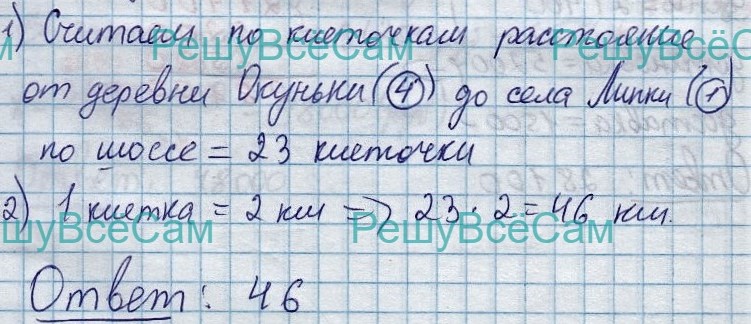 1) Считаем по клеточкам расстояние
РешуВсёСам РешуВсёСам
от деревни Окуньки (4) до села Липки (1)
по шоссе = 23 клеточки
2) 1 клетка = 2 км => 23 · 2 = 46 км.
РешуВсёСам РешуВсёСам
Ответ: 46